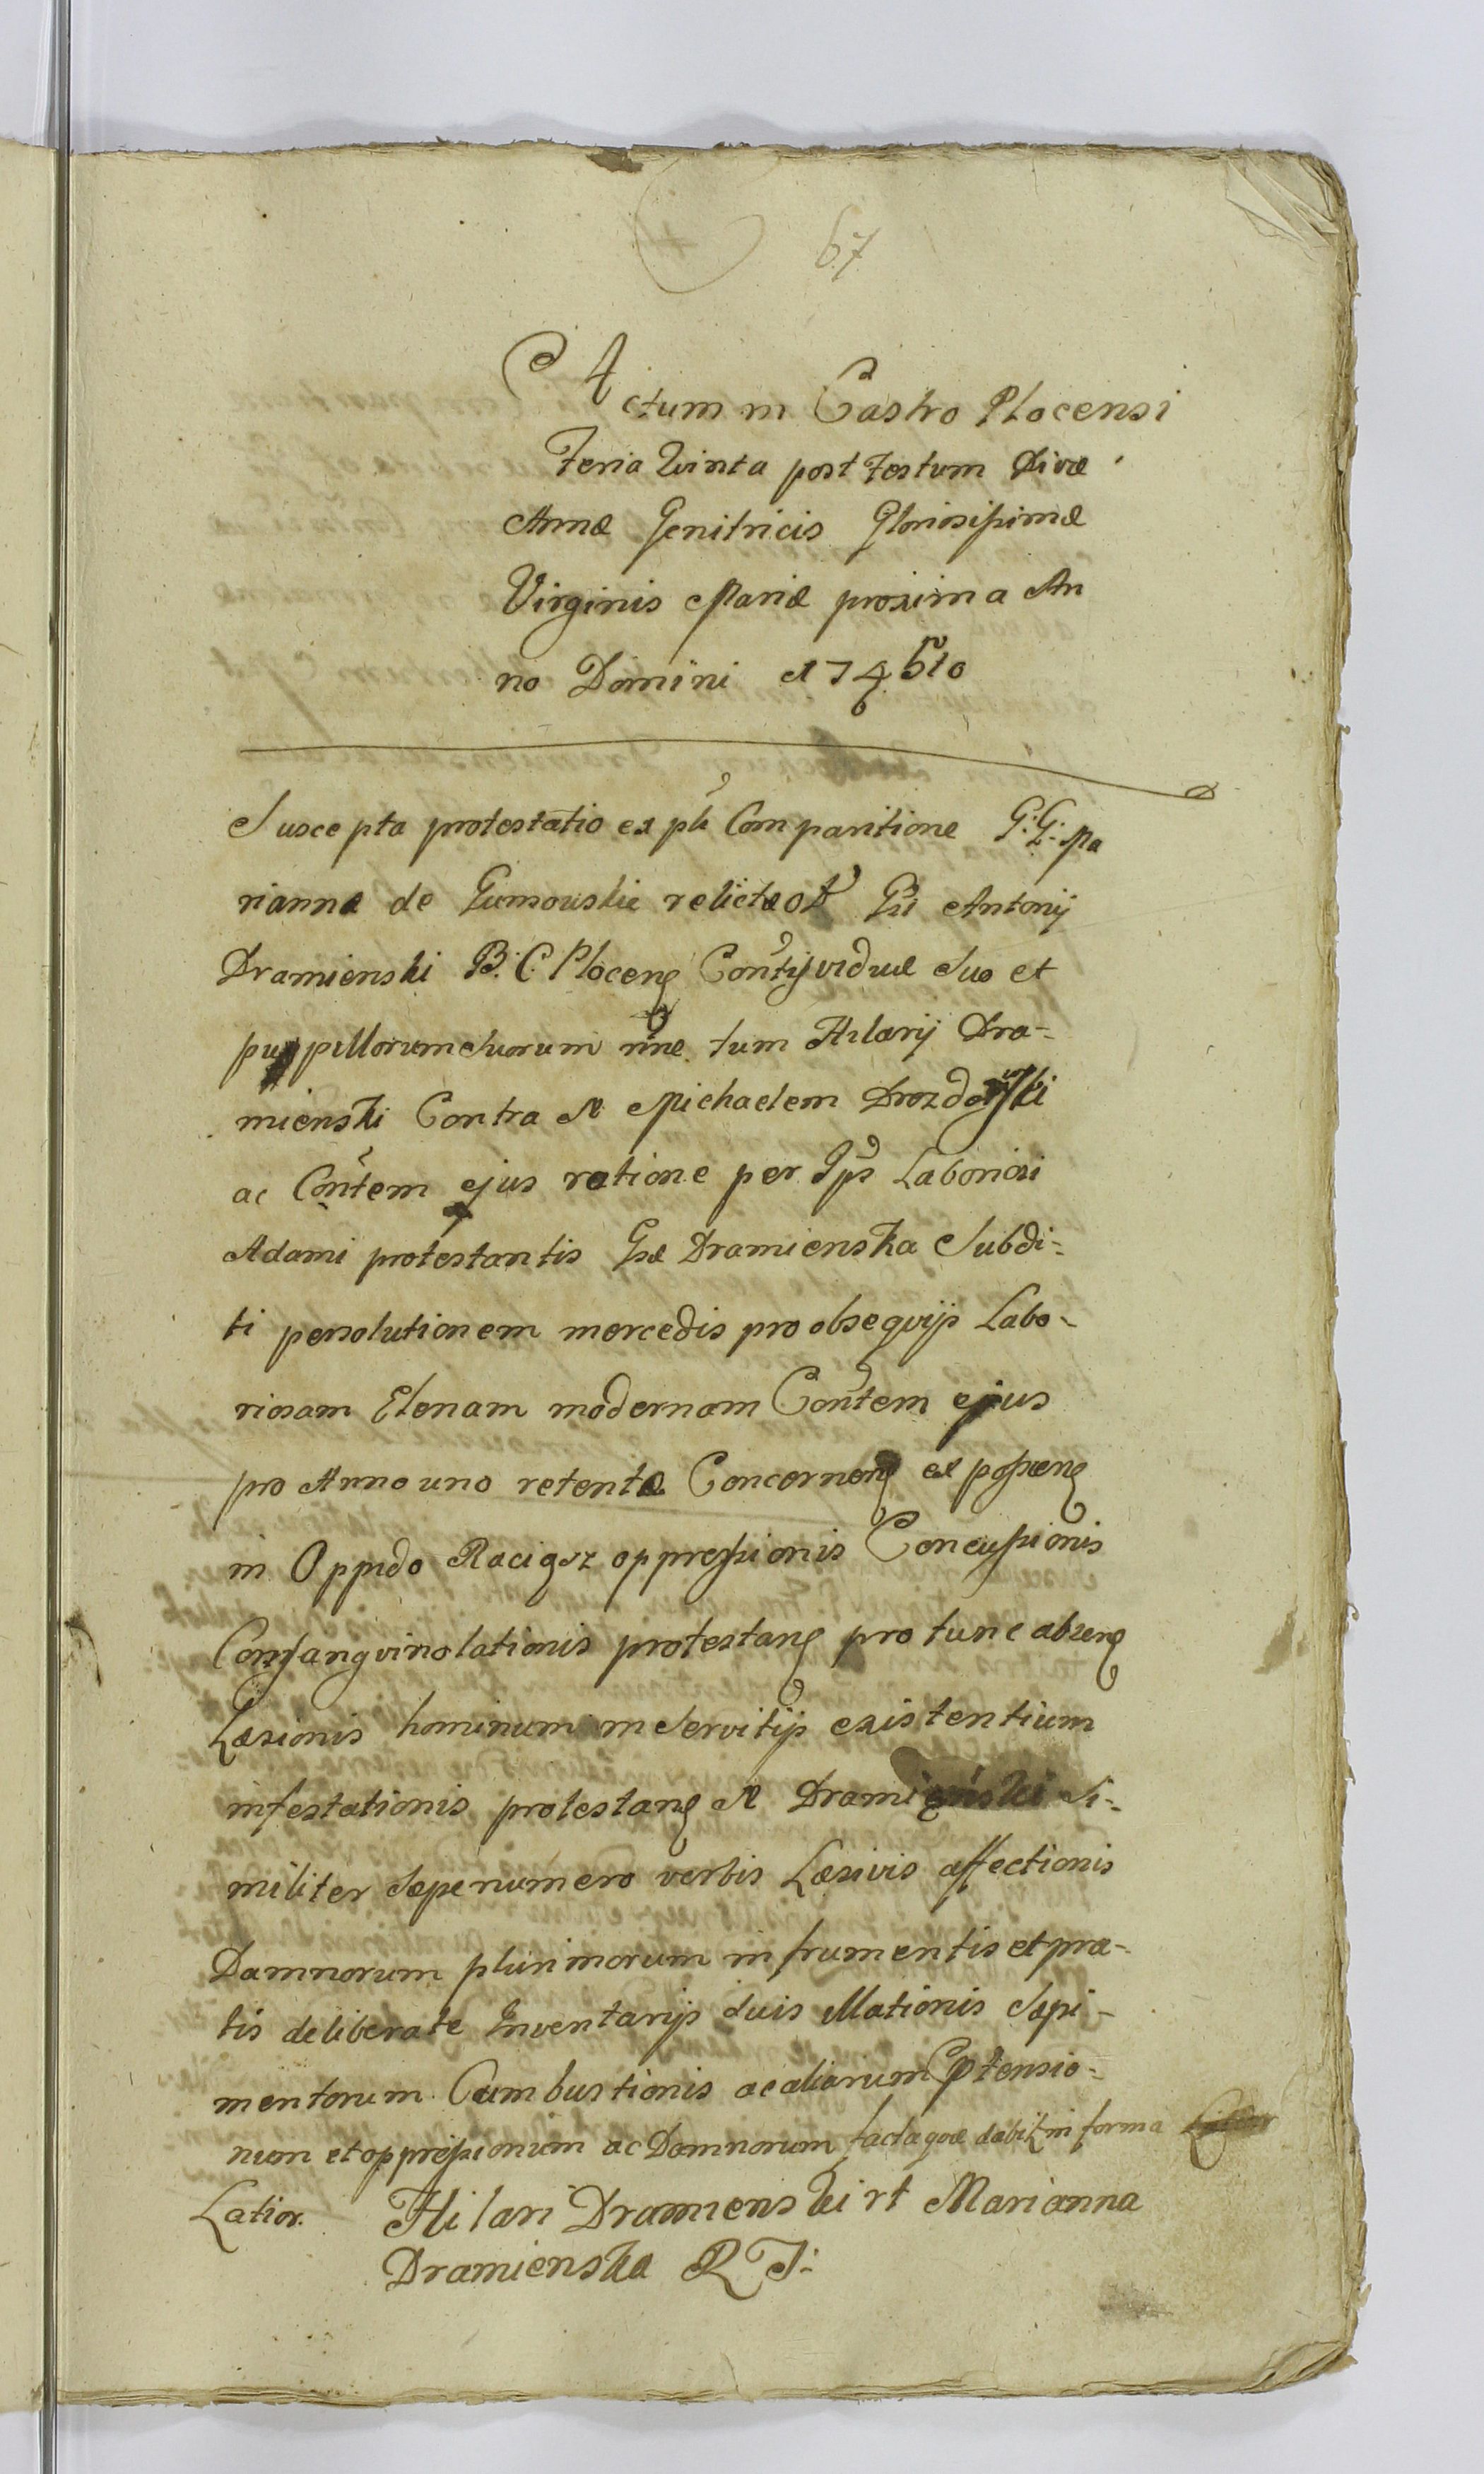 67
Actum in Castro Plocensi
Feria Qvinta post Festum Divæ
Annæ Genitricis Gloriosissimæ
Virginis Mariæ proxima An
no Domini 1745to
Suscepta protestatio ex pli Comparitione G:G: Ma
riannæ de Gumowskie relictæ Gsi Antonij
Dramienski B. C. Plocens Contij viduæ Suo et
puppillorum Suorum nne tum Hilarij Dra-
mienski Contra N Michaelem Drozdowski
ac Contem ejus ratione per Ips Laboriosi
Adami protestantis Gsæ Dramienska Subdi-
ti persolutionem mercedis pro obseqvijs Labo-
riosam Elenam modernam Contem ejus
pro Anno uno retentæ Concernens
in Oppido Raciąsz oppressionis Concussionis
Consangvinolationis protestans pro tunc absens
Læsionis hominum in Servitijs existentium
infestationis protestans N Dramięński Si-
militer Sæpenumero verbis Læsivis affectionis
Damnorum plurimorum in frumentis et pra-
tis deliberate Inventarijs suis illationis Sæpi-
mentorum Cumbustionis ac aliarum Ptensio-
num et oppressionum ac Damnorum facta quæ dabit in forma
Latior. Hilari Dramienski rt Marianna
Dramienska R T: